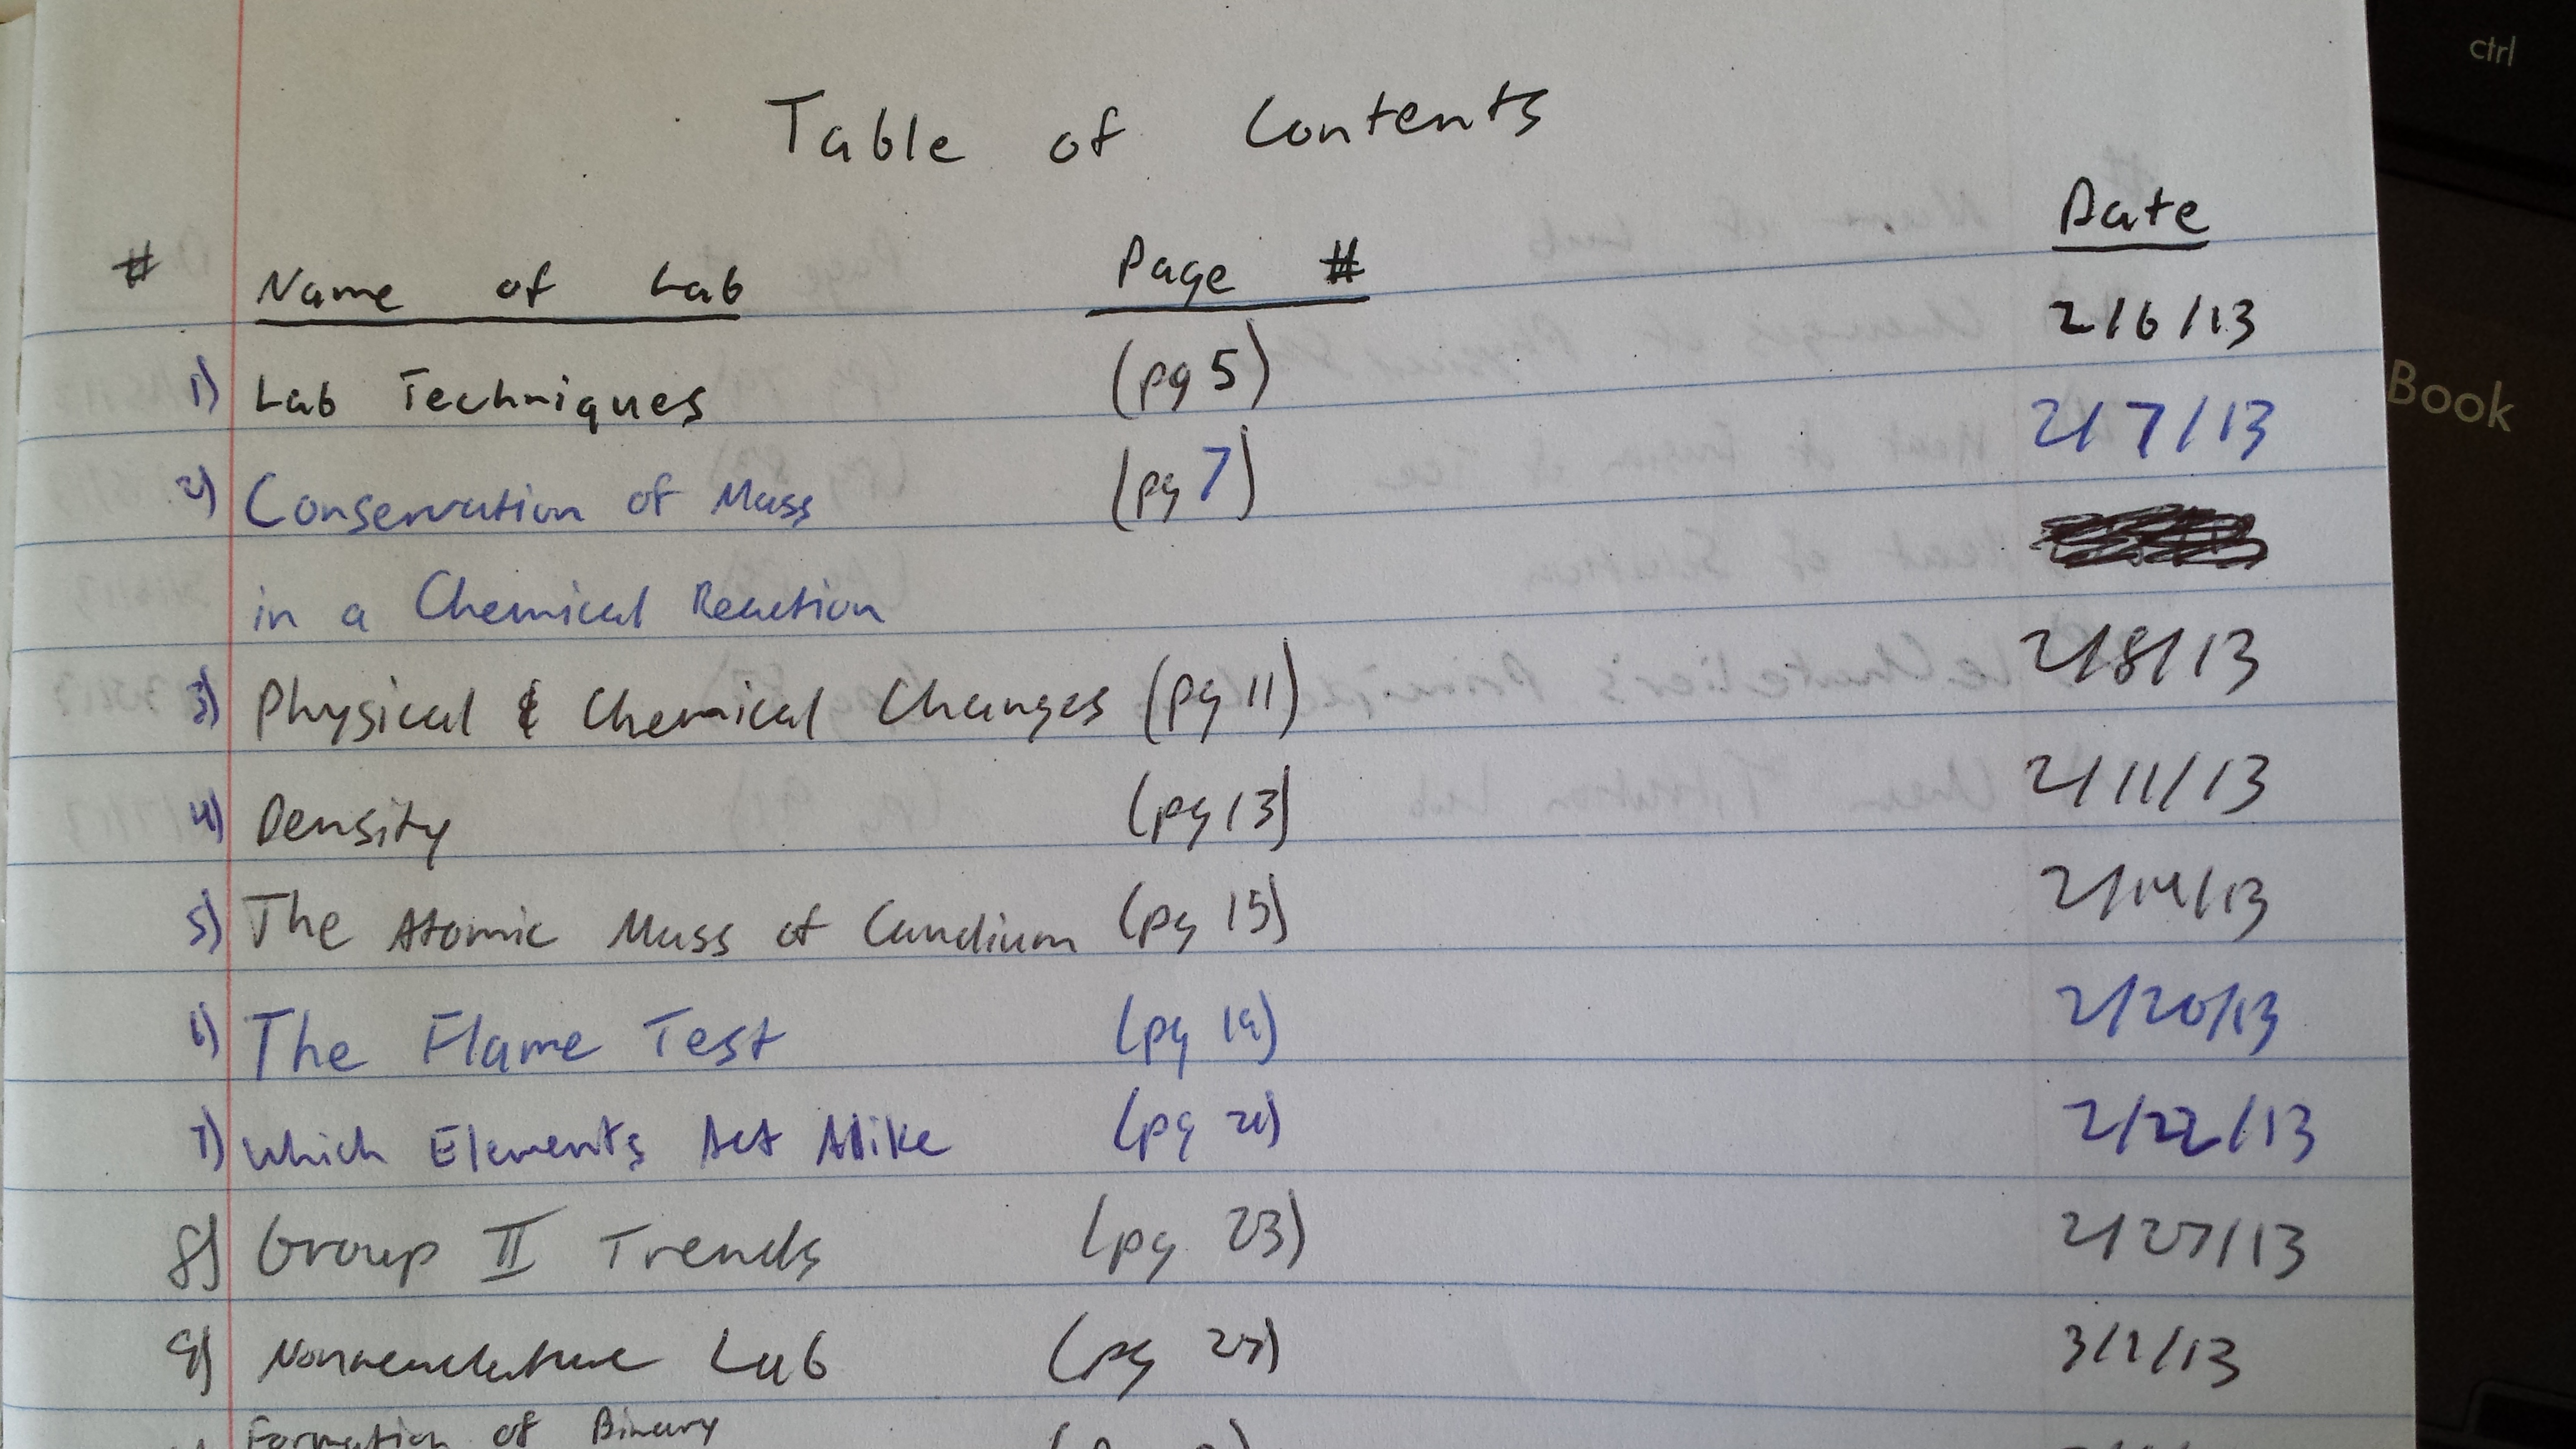 Table of Contents
# Name of Lab Page # Date
1) Lab Techniques (pg 5) 2/6/13
2) Conservation of Mass (pg 7) 2/7/13
in a Chemical Reaction
3) Physical & Chemical Changes (pg 11) 2/8/13
4) Density (pg 13) 2/11/13
5) The Atomic Mass of Candium (pg 15) 2/14/13
6) The Flame Test (pg 19) 2/20/13
7) Which Elements Act Alike (pg 21) 2/22/13
8) Group II Trends (pg 23) 2/27/13
9) Nomenclature Lab (pg 27) 3/1/13
Formation of Binary
ctrl
Book